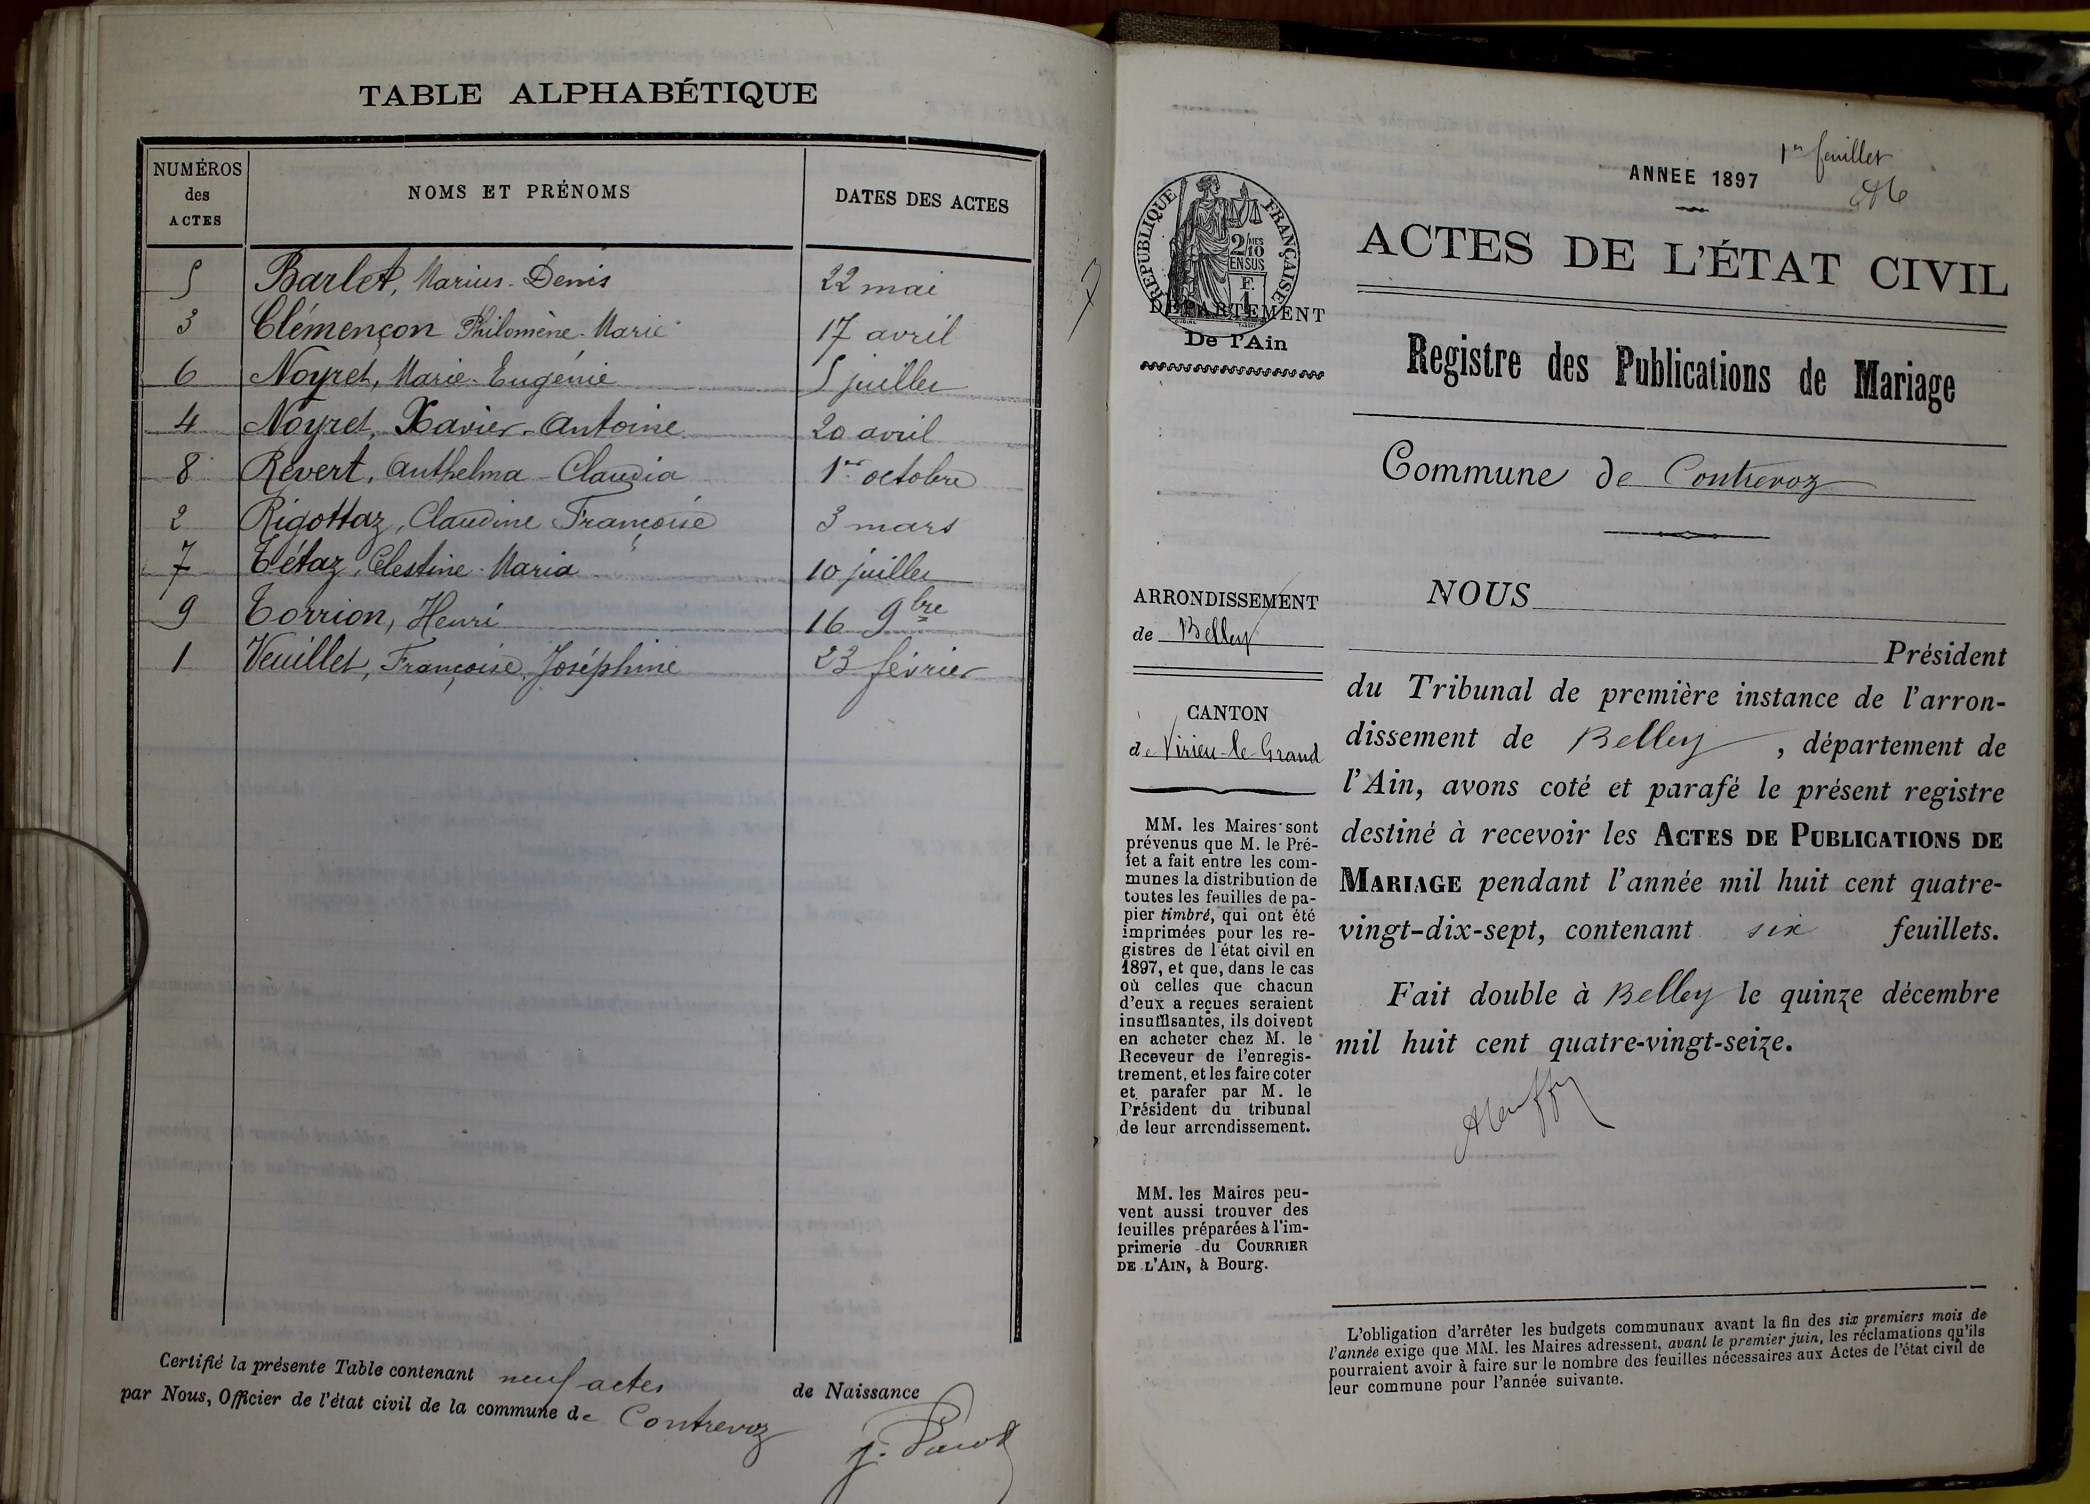 TABLE ALPHABÉTIQUE
NUMÉROS
des
ACTES
NOMS ET PRÉNOMS
DATES DES ACTES
5 Barlet, Marius-Denis 22 mai
3 Clémençon Philomène-Marie 17 avril
6 Noyret, Marie-Eugénie 5 juillet
4 Noyret, Xavier-Antoine 20 avril
8 Revert, Anthelma-Claudia 1er octobre
2 Rigottaz, Claudine Françoise 3 mars
7 Tétaz, Célestine-Maria 10 juillet
9 Torrion, Henri 16 9bre
1 Veuillet, Françoise, Joséphine 23 février
Certifié la présente Table contenant neuf actes de Naissance
par Nous, Officier de l'état civil de la commune de Contrevoz
1er feuillet
ANNÉE 1897
RÉPUBLIQUE FRANÇAISE
2/10 MES
EN SUS
F.
1
DÉPARTEMENT
De l'Ain
ACTES DE L'ÉTAT CIVIL
Registre des Publications de Mariage
Commune de Contrevoz
ARRONDISSEMENT
de Belley
CANTON
de Virieu-le-Grand
MM. les Maires sont
prévenus que M. le Pré-
fet a fait entre les com-
munes la distribution de
toutes les feuilles de pa-
pier timbré, qui ont été
imprimées pour les re-
gistres de l'état civil en
1897, et que, dans le cas
où celles que chacun
d'eux a reçues seraient
insuffisantes, ils doivent
en acheter chez M. le
Receveur de l'enregis-
trement, et les faire coter
et parafer par M. le
Président du tribunal
de leur arrondissement.
MM. les Maires peu-
vent aussi trouver des
feuilles préparées à l'im-
primerie du COURRIER
DE L'AIN, à Bourg.
NOUS
Président
du Tribunal de première instance de l'arron-
dissement de Belley, département de
l'Ain, avons coté et parafé le présent registre
destiné à recevoir les ACTES DE PUBLICATIONS DE
MARIAGE pendant l'année mil huit cent quatre-
vingt-dix-sept, contenant six feuillets.
Fait double à Belley le quinze décembre
mil huit cent quatre-vingt-seize.
L'obligation d'arrêter les budgets communaux avant la fin des six premiers mois de
l'année exige que MM. les Maires adressent, avant le premier juin, les réclamations qu'ils
pourraient avoir à faire sur le nombre des feuilles nécessaires aux Actes de l'état civil de
leur commune pour l'année suivante.